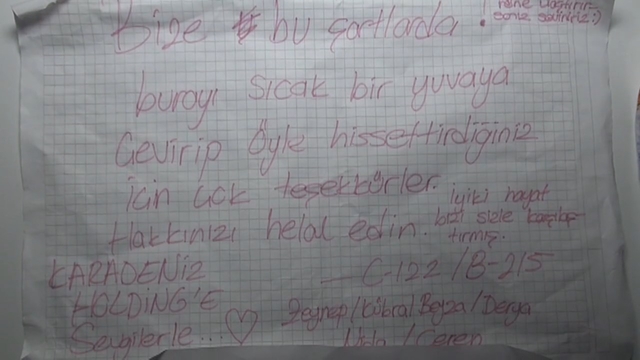 Bize bu şartlarda !
burayı sıcak bir yuvaya
Çevirip Öyle hissettirdiğiniz
için çok teşekkürler. iyiki hayat
Hakkınızı helal edin. bizi sizle karşılaş-
tırmış.
KARADENİZ — C-122 / B-215
HOLDİNG'E Zeynep/Kübra/Beyza/Derya
Sevgilerle...♡ Ceren